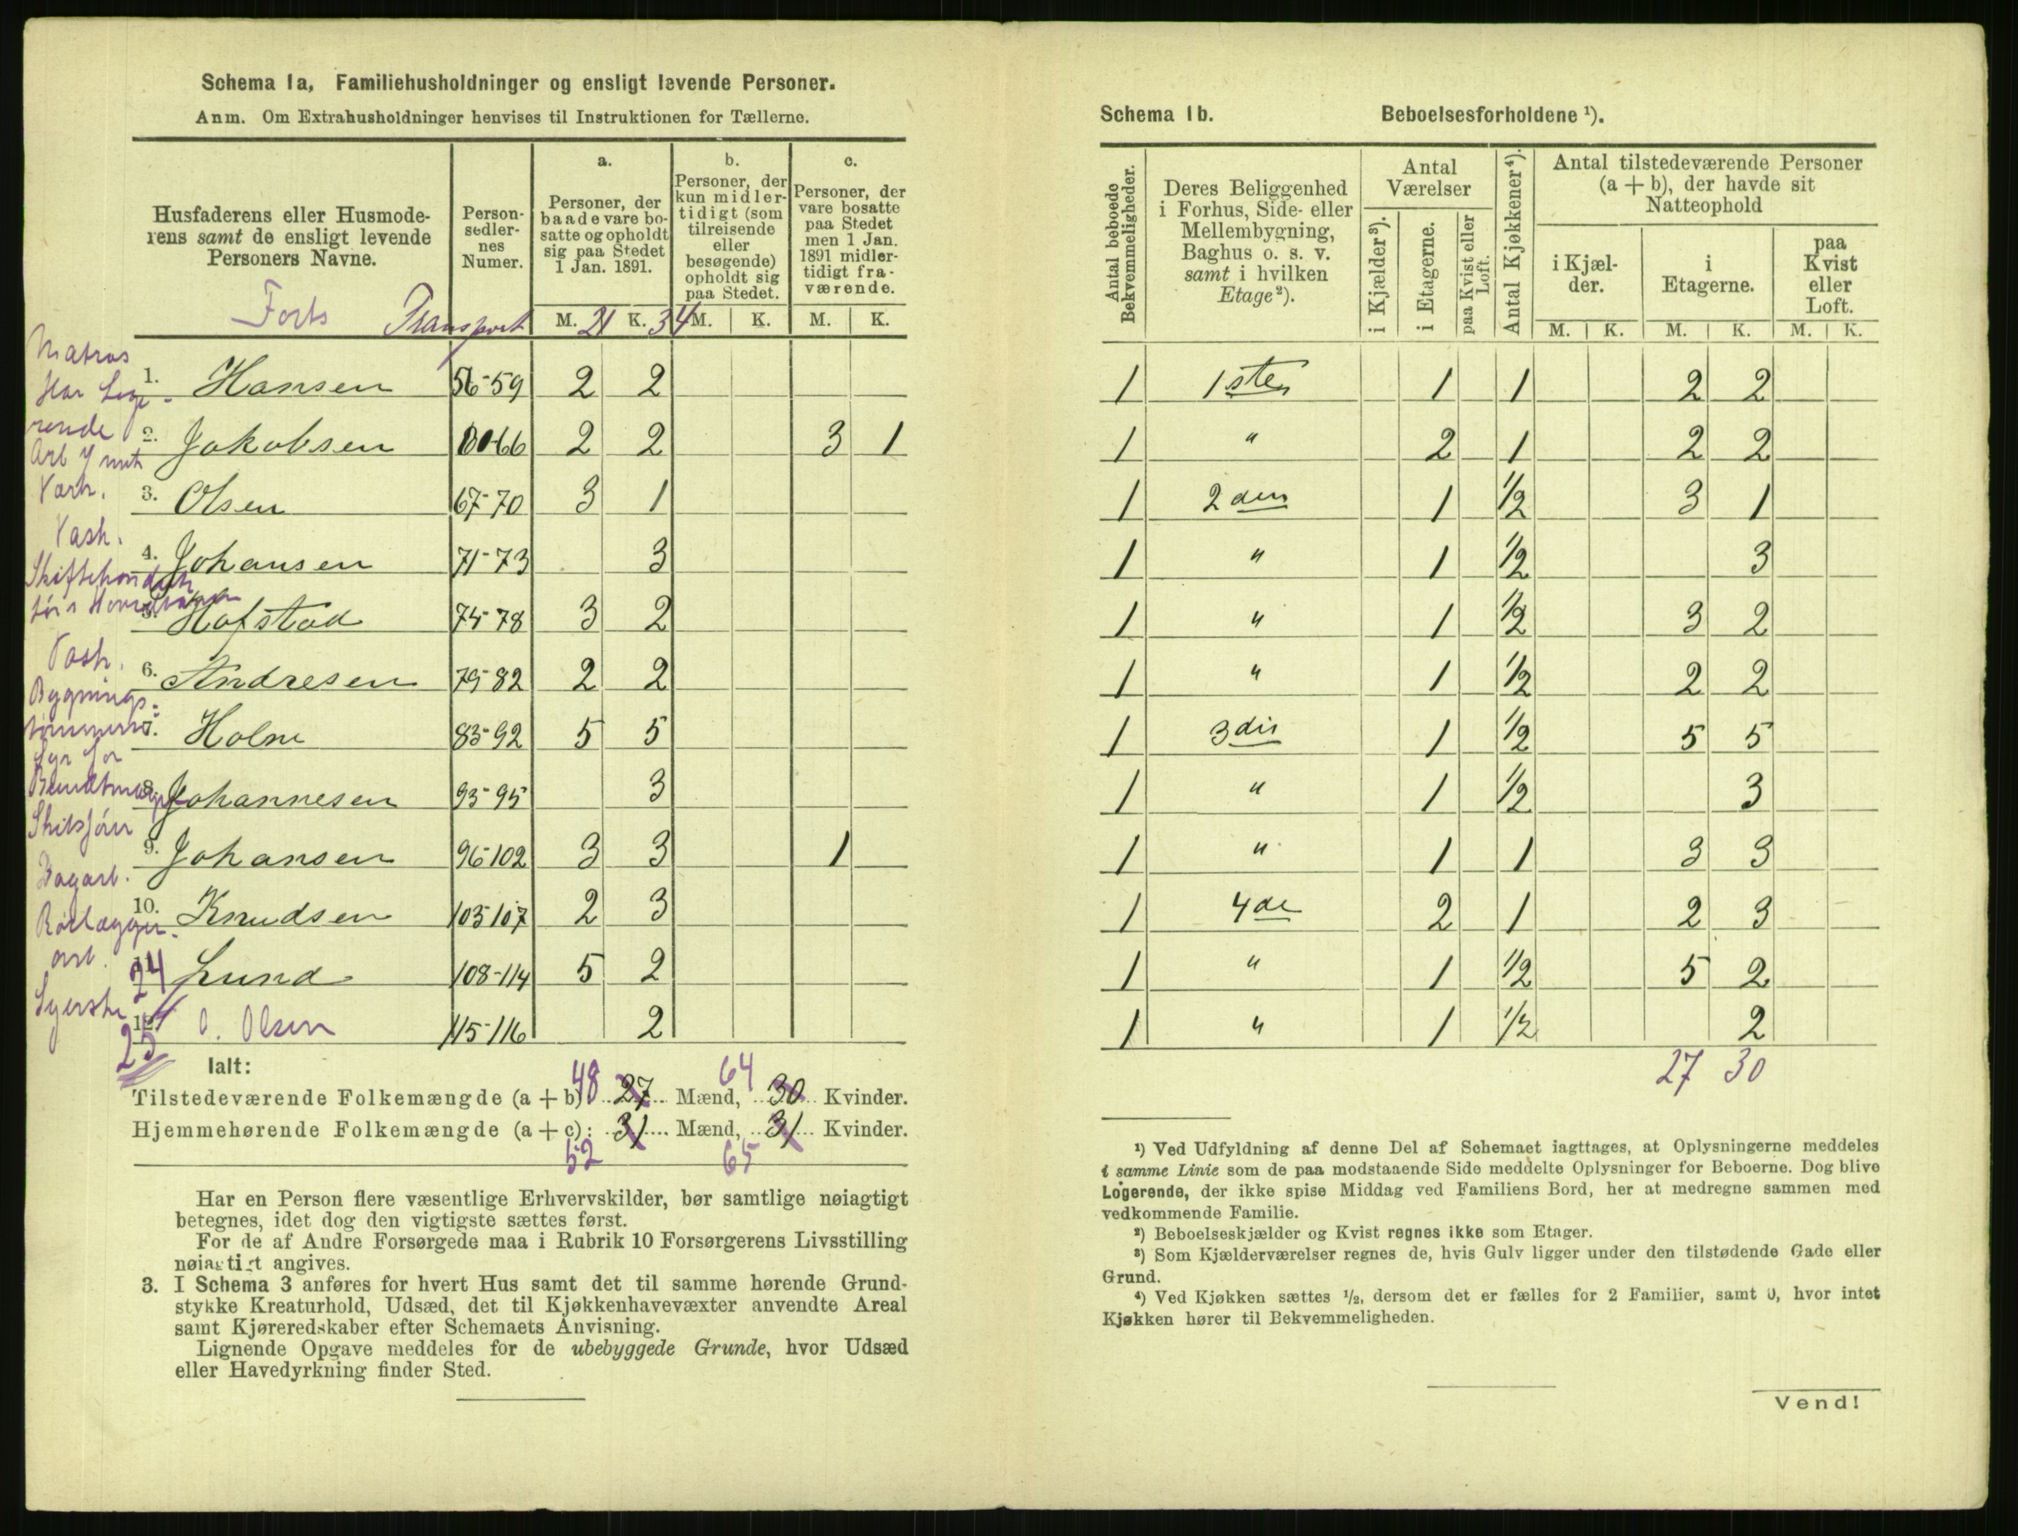 Schema 1a, Familiehusholdninger og ensligt levende Personer.
Anm. Om Extrahusholdninger henvises til Instruktionen for Tællerne.
Husfaderens eller Husmode-
rens samt de ensligt levende
Personers Navne.
Person-
sedler-
nes
Numer.
a.
Personer, der
baade vare bo-
satte og opholdt
sig paa Stedet
1 Jan. 1891.
b.
Personer, der
kun midler-
tidigt (som
tilreisende
eller
besøgende)
opholdt sig
paa Stedet.
c.
Personer, der
vare bosatte
paa Stedet
men 1 Jan.
1891 midler-
tidigt fra-
værende.
Forts Transport M. 21 K. 34 M. K. M. K.
Matros
1. Hansen 56-59 2 2
Har Loge-
rende
2. Jakobsen 60-66 2 2 3 1
Arb
Værk.
3. Olsen 67-70 3 1
Vask.
4. Johansen 71-73 3
5. Hofstad 74-78 3 2
Vask.
6. Andresen 79-82 2 2
Bygnings-
7. Holm 83-92 5 5
Fyr for
8. Johannesen 93-95 3
9. Johansen 96-102 3 3 1
Dagarb.
10. Knudsen 103-107 2 3
Rørlægger-
arb.
11. 24 Lund 108-114 5 2
Syerske
12. O. Olsen 115-116 2
25
Ialt:
48 64
Tilstedeværende Folkemængde (a + b) 27 Mænd, 30 Kvinder.
Hjemmehørende Folkemængde (a + c): 31 Mænd, 31 Kvinder.
52 65
Har en Person flere væsentlige Erhvervskilder, bør samtlige nøiagtigt
betegnes, idet dog den vigtigste sættes først.
For de af Andre Forsørgede maa i Rubrik 10 Forsørgerens Livsstilling
nøiagtigt angives.
3. I Schema 3 anføres for hvert Hus samt det til samme hørende Grund-
stykke Kreaturhold, Udsæd, det til Kjøkkenhavevæxter anvendte Areal
samt Kjøreredskaber efter Schemaets Anvisning.
Lignende Opgave meddeles for de ubebyggede Grunde, hvor Udsæd
eller Havedyrkning finder Sted.
Schema 1b. Beboelsesforholdene ¹).
Antal beboede
Bekvemmeligheder.
Deres Beliggenhed
i Forhus, Side- eller
Mellembygning,
Baghus o. s. v.
samt i hvilken
Etage²).
Antal
Værelser
i Kjælder³).
i Etagerne.
paa Kvist eller
Loft.
Antal Kjøkkener⁴).
Antal tilstedeværende Personer
(a + b), der havde sit
Natteophold
i Kjæl-
der.
i
Etagerne.
paa
Kvist
eller
Loft.
M. K. M. K. M. K.
1 1ste 1 1 2 2
1 " 2 1 2 2
1 2den 1 1/2 3 1
1 " 1 1/2 3
1 " 1 1/2 3 2
1 " 1 1/2 2 2
1 3die 1 1/2 5 5
1 " 1 1/2 3
1 " 1 1 3 3
1 4de 2 1 2 3
1 " 1 1/2 5 2
1 " 1 1/2 2
27 30
¹) Ved Udfyldning af denne Del af Schemaet iagttages, at Oplysningerne meddeles
i samme Linie som de paa modstaaende Side meddelte Oplysninger for Beboerne. Dog blive
Logerende, der ikke spise Middag ved Familiens Bord, her at medregne sammen med
vedkommende Familie.
²) Beboelseskjælder og Kvist regnes ikke som Etager.
³) Som Kjælderværelser regnes de, hvis Gulv ligger under den tilstødende Gade eller
Grund.
⁴) Ved Kjøkken sættes ½, dersom det er fælles for 2 Familier, samt 0, hvor intet
Kjøkken hører til Bekvemmeligheden.
Vend!